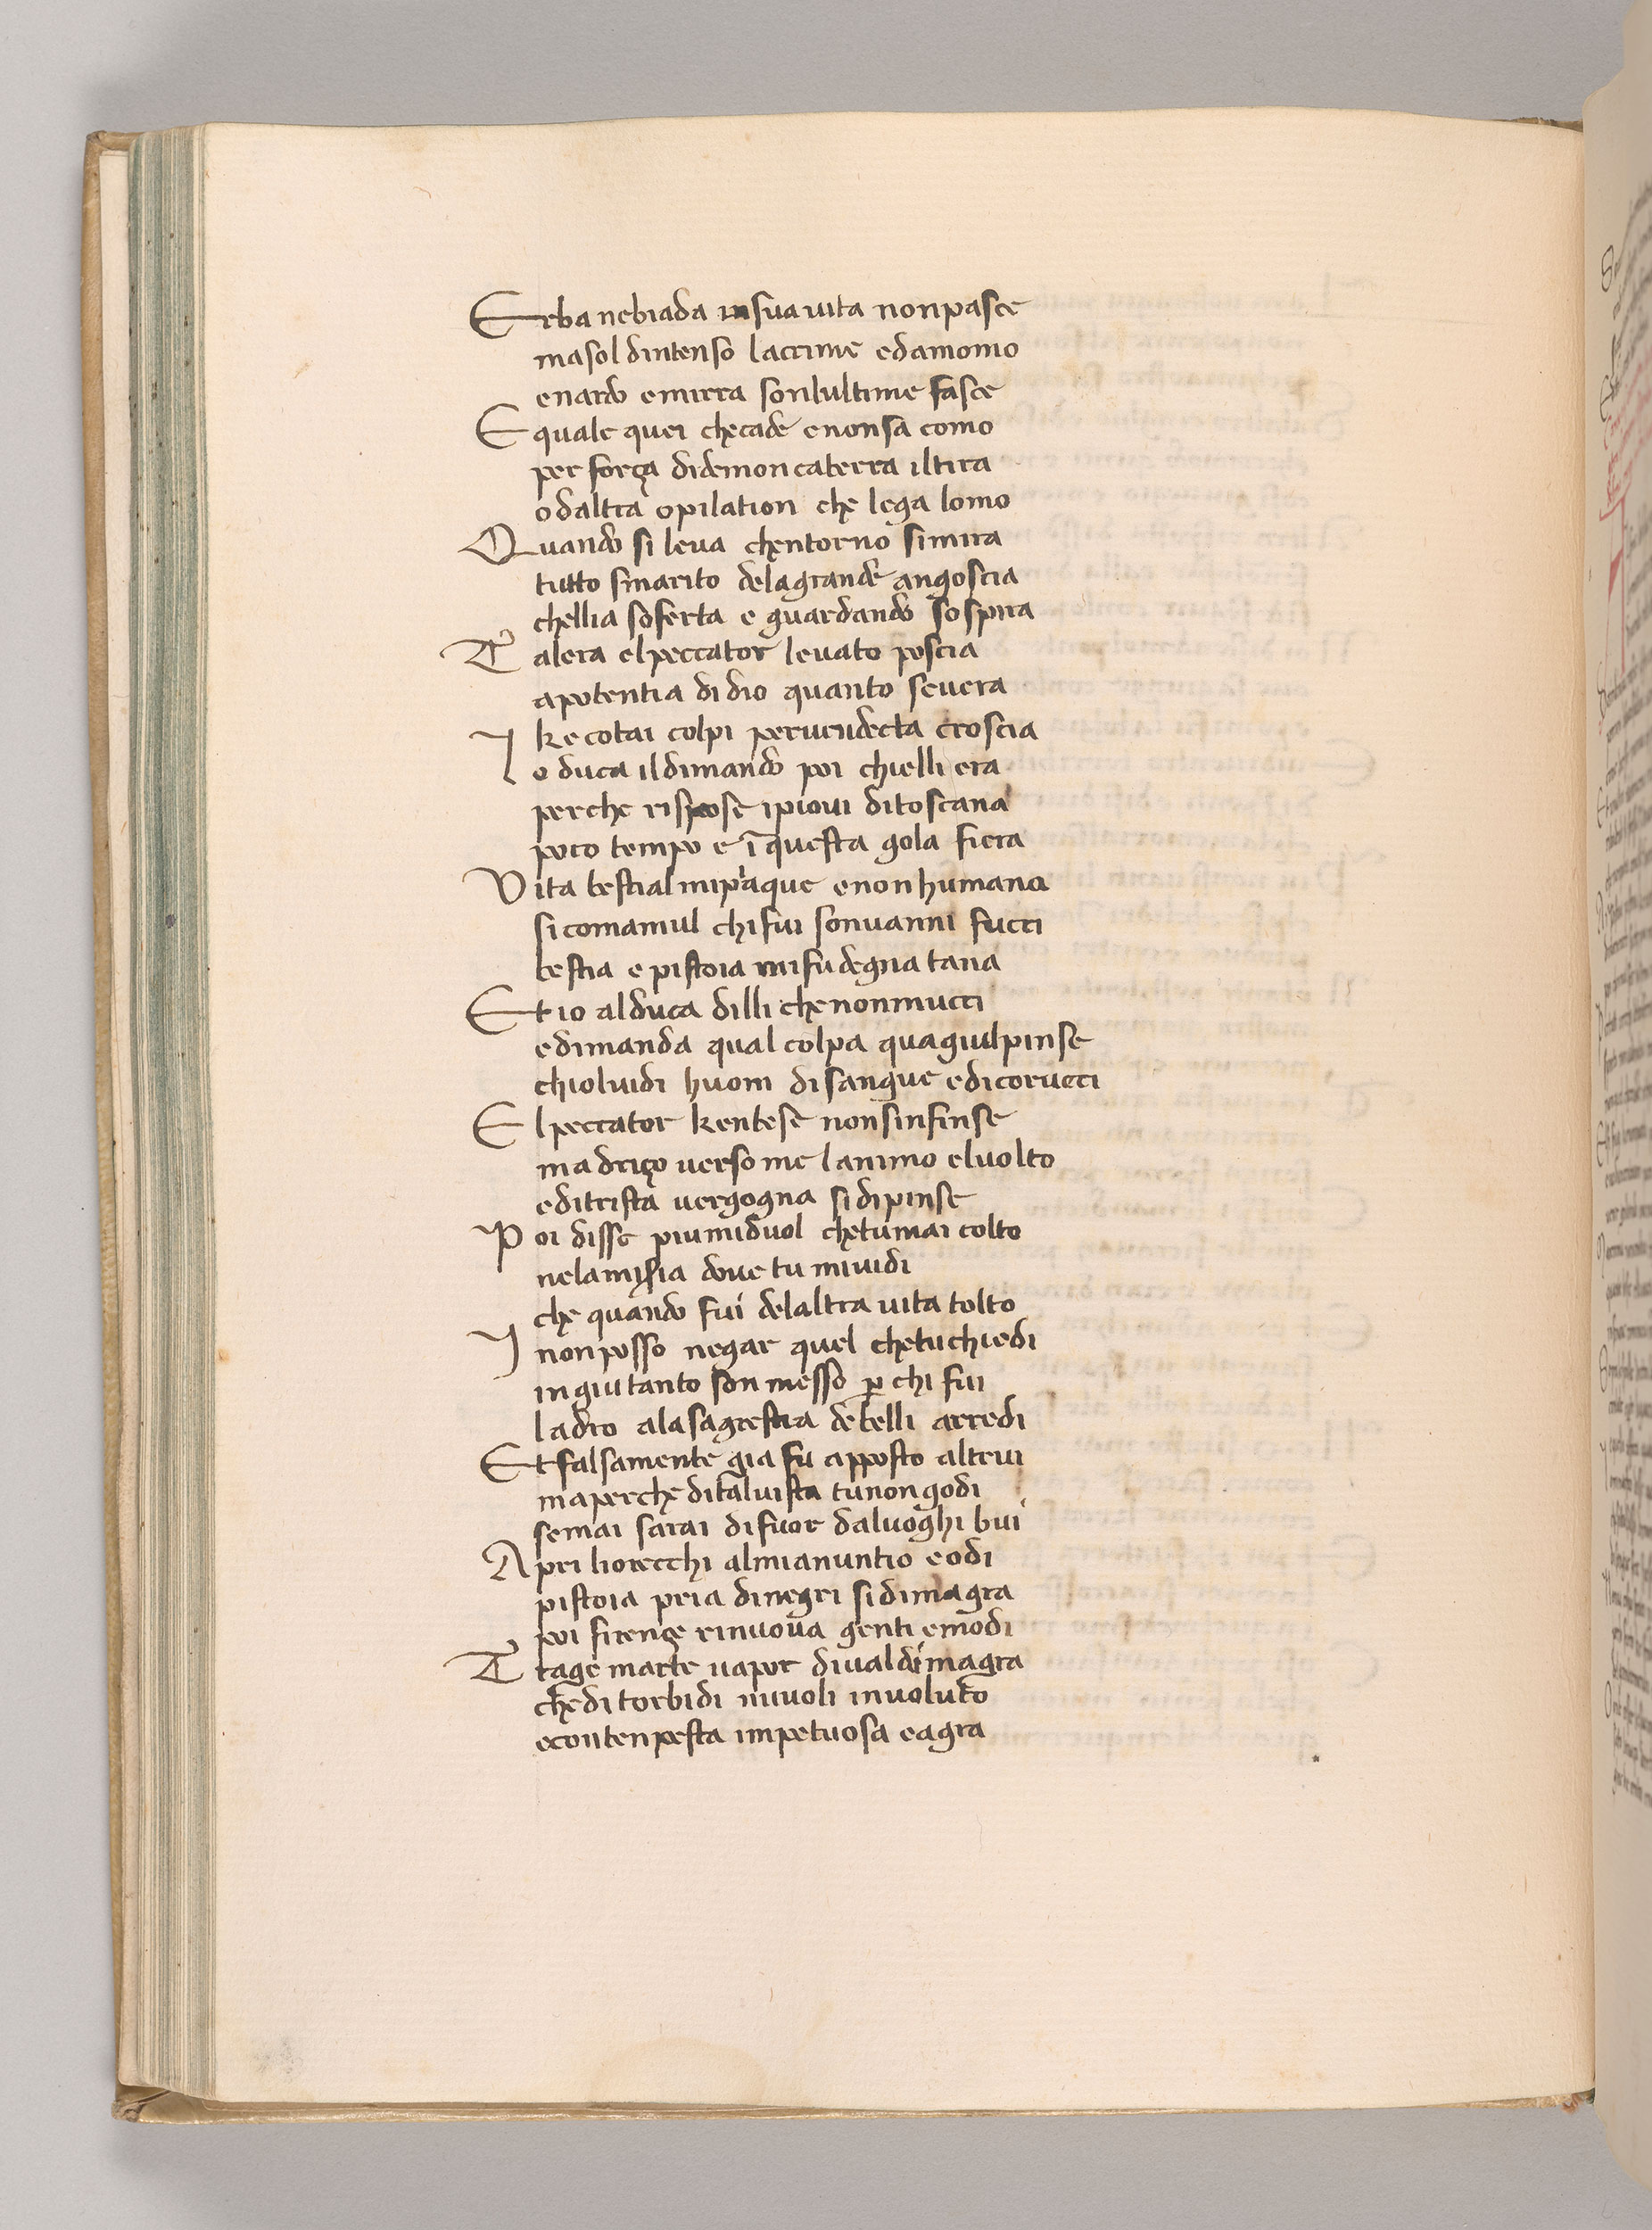 Erba nebiada in sua uita nonpasce
masol dintenso lacrime edamomo
enardo emirra sonlultime fasce
Equale quei checade enonsa como
per força didemon caterra iltira
odaltra opilation che lega lomo
Quando si leua chentorno simira
tutto smarito delagrande angoscia
chellia soferta e guardando sospira
Talera elpeccator leuato poscia
apotentia di dio quanto seuera
ke cotai colpi peruendecta croscia
Io duca ildimando poi chielli era
perche rispose ipioui ditoscana
poco tempo e ī questa gola fiera
Vita bestial mipiaque enonhumana
si comamul chifui sonuanni fucci
bestia epistoia mifudegna tana
Et io alduca dilli chenonmucci
edimanda qual colpa quagiulpinse
chioluidi huom disangue edicorucci
Elpeccator kentese nonsinfinse
madriço uerso me lanimo eluolto
editrista uergogna sidipinse
Poi disse piumiduol chetumai colto
nelamiseria doue tu miuidi
che quando fui delaltra uita tolto
I nonposso negar quel chetuchiedi
ingiutanto son messo ꝑchi fui
ladro alasagrestia debelli arredi
Et falsamente gia fu apposto altrui
maperche dital uista tunongodi
semai sarai difuor daluoghi bui
Apri liorecchi almianuntio eodi
pistoia pria dinegri sidimagra
poi firençe rinuoua genti emodi
Trage marte uapor diualdimagra
chedi torbidi nuuoli inuoluto
econtenpesta impetuosa eagra